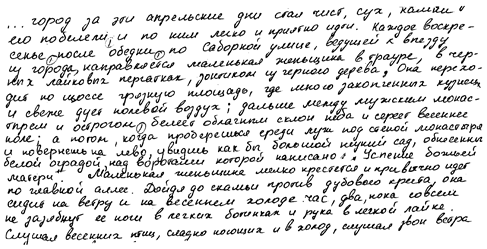 ... город за эти апрельские дни стал чист, сух, камни
его побелели и по ним легко и приятно идти. Каждое воскре-
сенье после обедни по Соборной улице, ведущей к выезду
из города, направляется маленькая женщина в трауре, в чер-
ных лайковых перчатках, зонтиком из черного дерева. Она перехо-
дит по шоссе грязную площадь, где много закопченных кузниц
и свежо дует полевой воздух; дальше между мужским монас-
тырем и острогом белеет облачный склон неба и сереет весеннее
поле; а потом, когда проберешься среди луж под стеной монастыря
и повернешь на лево, увидишь как бы большой низкий сад, обнесенный
белой оградой, над воротами которой написано: "Успение божьей
матери". Маленькая женщина мелко крестится и привычно идет
по главной аллее. Дойдя до скамьи против дубового креста, она
сидит на ветру и на весеннем холоде час, два, пока совсем
не зазябнут ее ноги в легких ботинках и рука в легкой лайке.
Слушая весенних птиц, сладко поющих и в холод, слушая звон ветра